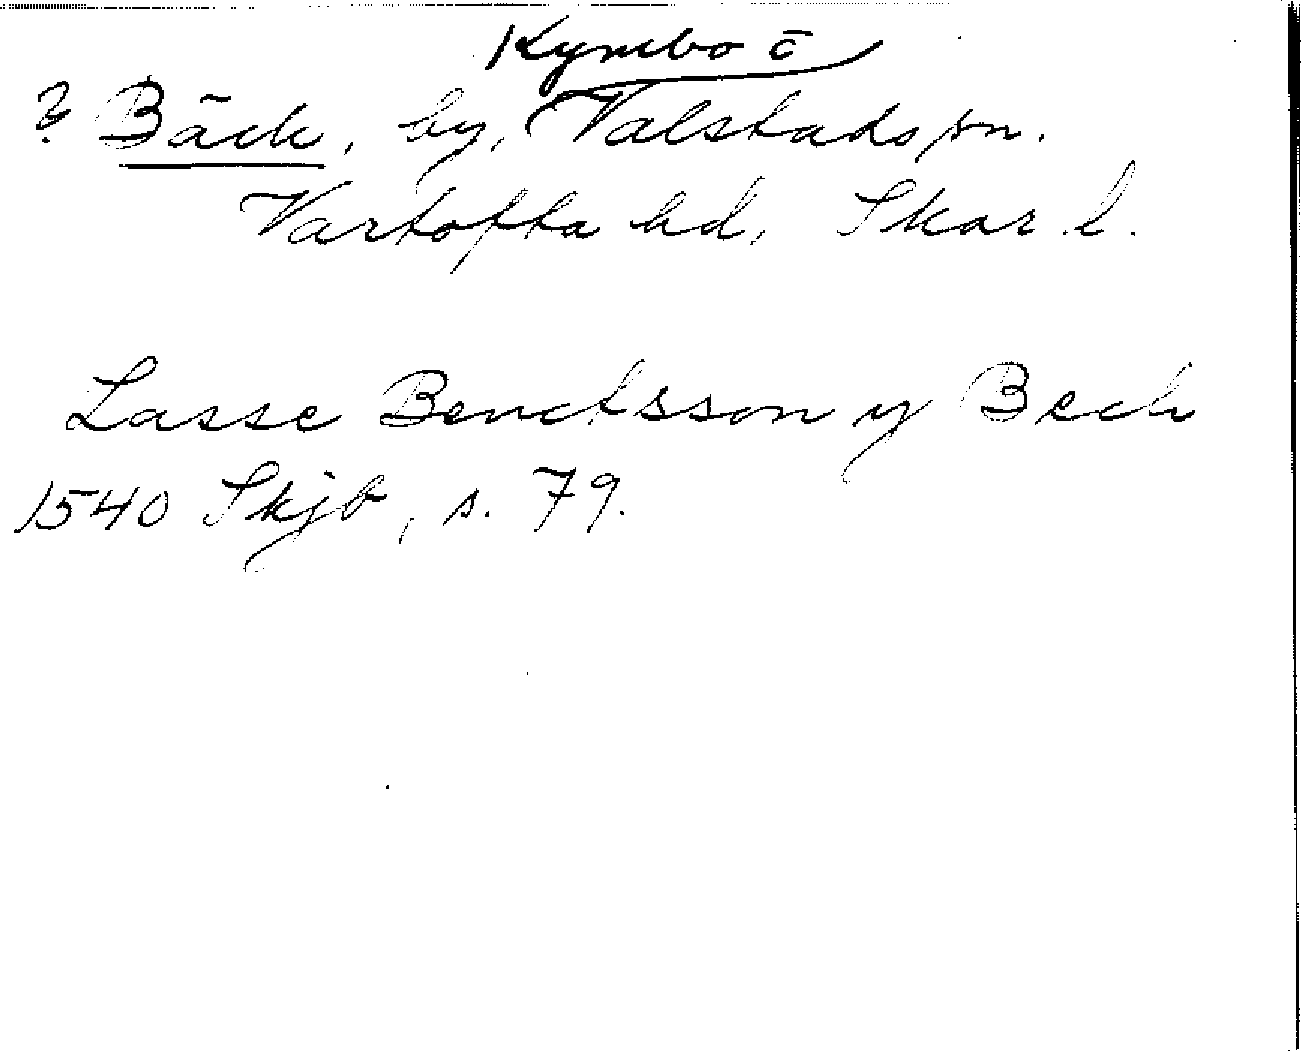 Kymbo c̄
? Bäck, by, Valstads sn.
Vartofta hd, Skar. l.
Lasse Benctsson y Bech
1540 Skjb, s. 79.